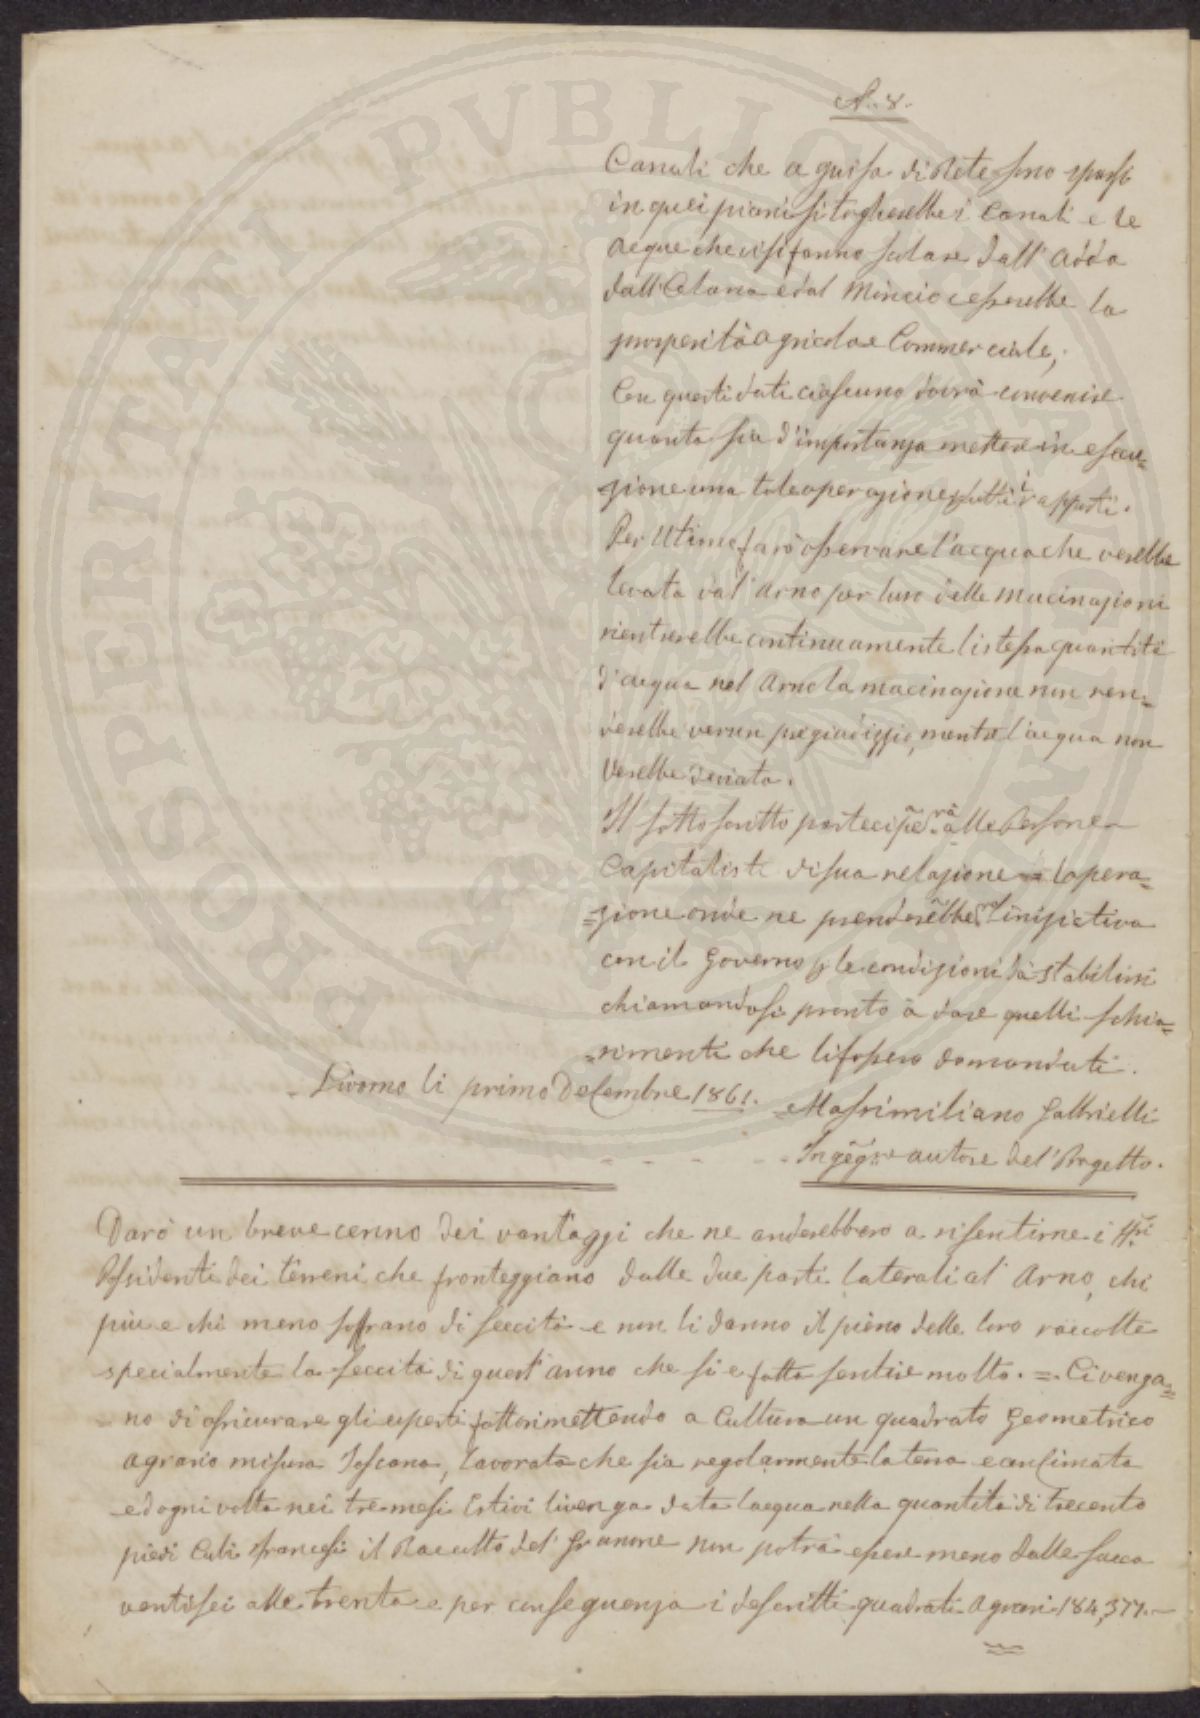 N. 8.
Canali che a guisa di Rete sono sparsi
in quei piani si toglierebbe i Canali e le
acque che vi si fanno scolare dall' Adda
dall'Olona e dal Mincio cesserebbe la
prosperità agricola e Commerciale;
Con questi dati ciascuno dovrà convenire
quanto sia d'importanza mettere in esecu=
=zione una tale operazione tutti i rapporti.
Per Ultimo farò osservare l'acqua che verebbe
levata dal' Arno per luso delle macinazioni
rientrerebbe continuamente listessa quantità
d'acqua nel Arno la macinazione non ren=
derebbe verun pregiudizzio, mentre l'acqua non
Verebbe deviata.
Il sottoscritto parteciperà alle Persone
Capitaliste di sua relazione lopera=
=zione onde ne prenderebbe linizictiva
con il Governo le condizioni dà stabilirsi
chiamandosi pronto à dare quelli schia=
=rimenti che lifossero domandati.
Livorno li primo Decembre 1861.
Massimiliano Gabbrielli
Ingegre autore del' Progetto.
Darò un breve cenno dei vantaggi che ne anderebbero a risentirne i
Possidenti dei terreni che fronteggiano dalle due parti laterali al' Arno, chi
più e chi meno soffrano di seccità e non li danno il pieno delle loro raccolte
specialmente la seccità di quest' anno che si e fatta sentire molto. = Ci venga=
no di assicurare gli esperti fattori mettendo a Cultura un quadrato Geometrico
agrario misura Toscana, lavorata che sia regolarmente la terra e concimata
ed ogni volta nei tre mesi Estivi li venga data lacqua nella quantità di trecento
piedi Cubi francesi il Raccolto del' Granone non potrà essere meno dalle sacca
ventisei alle trenta e per conseguenza i descritti quadrati agrari 184,377.